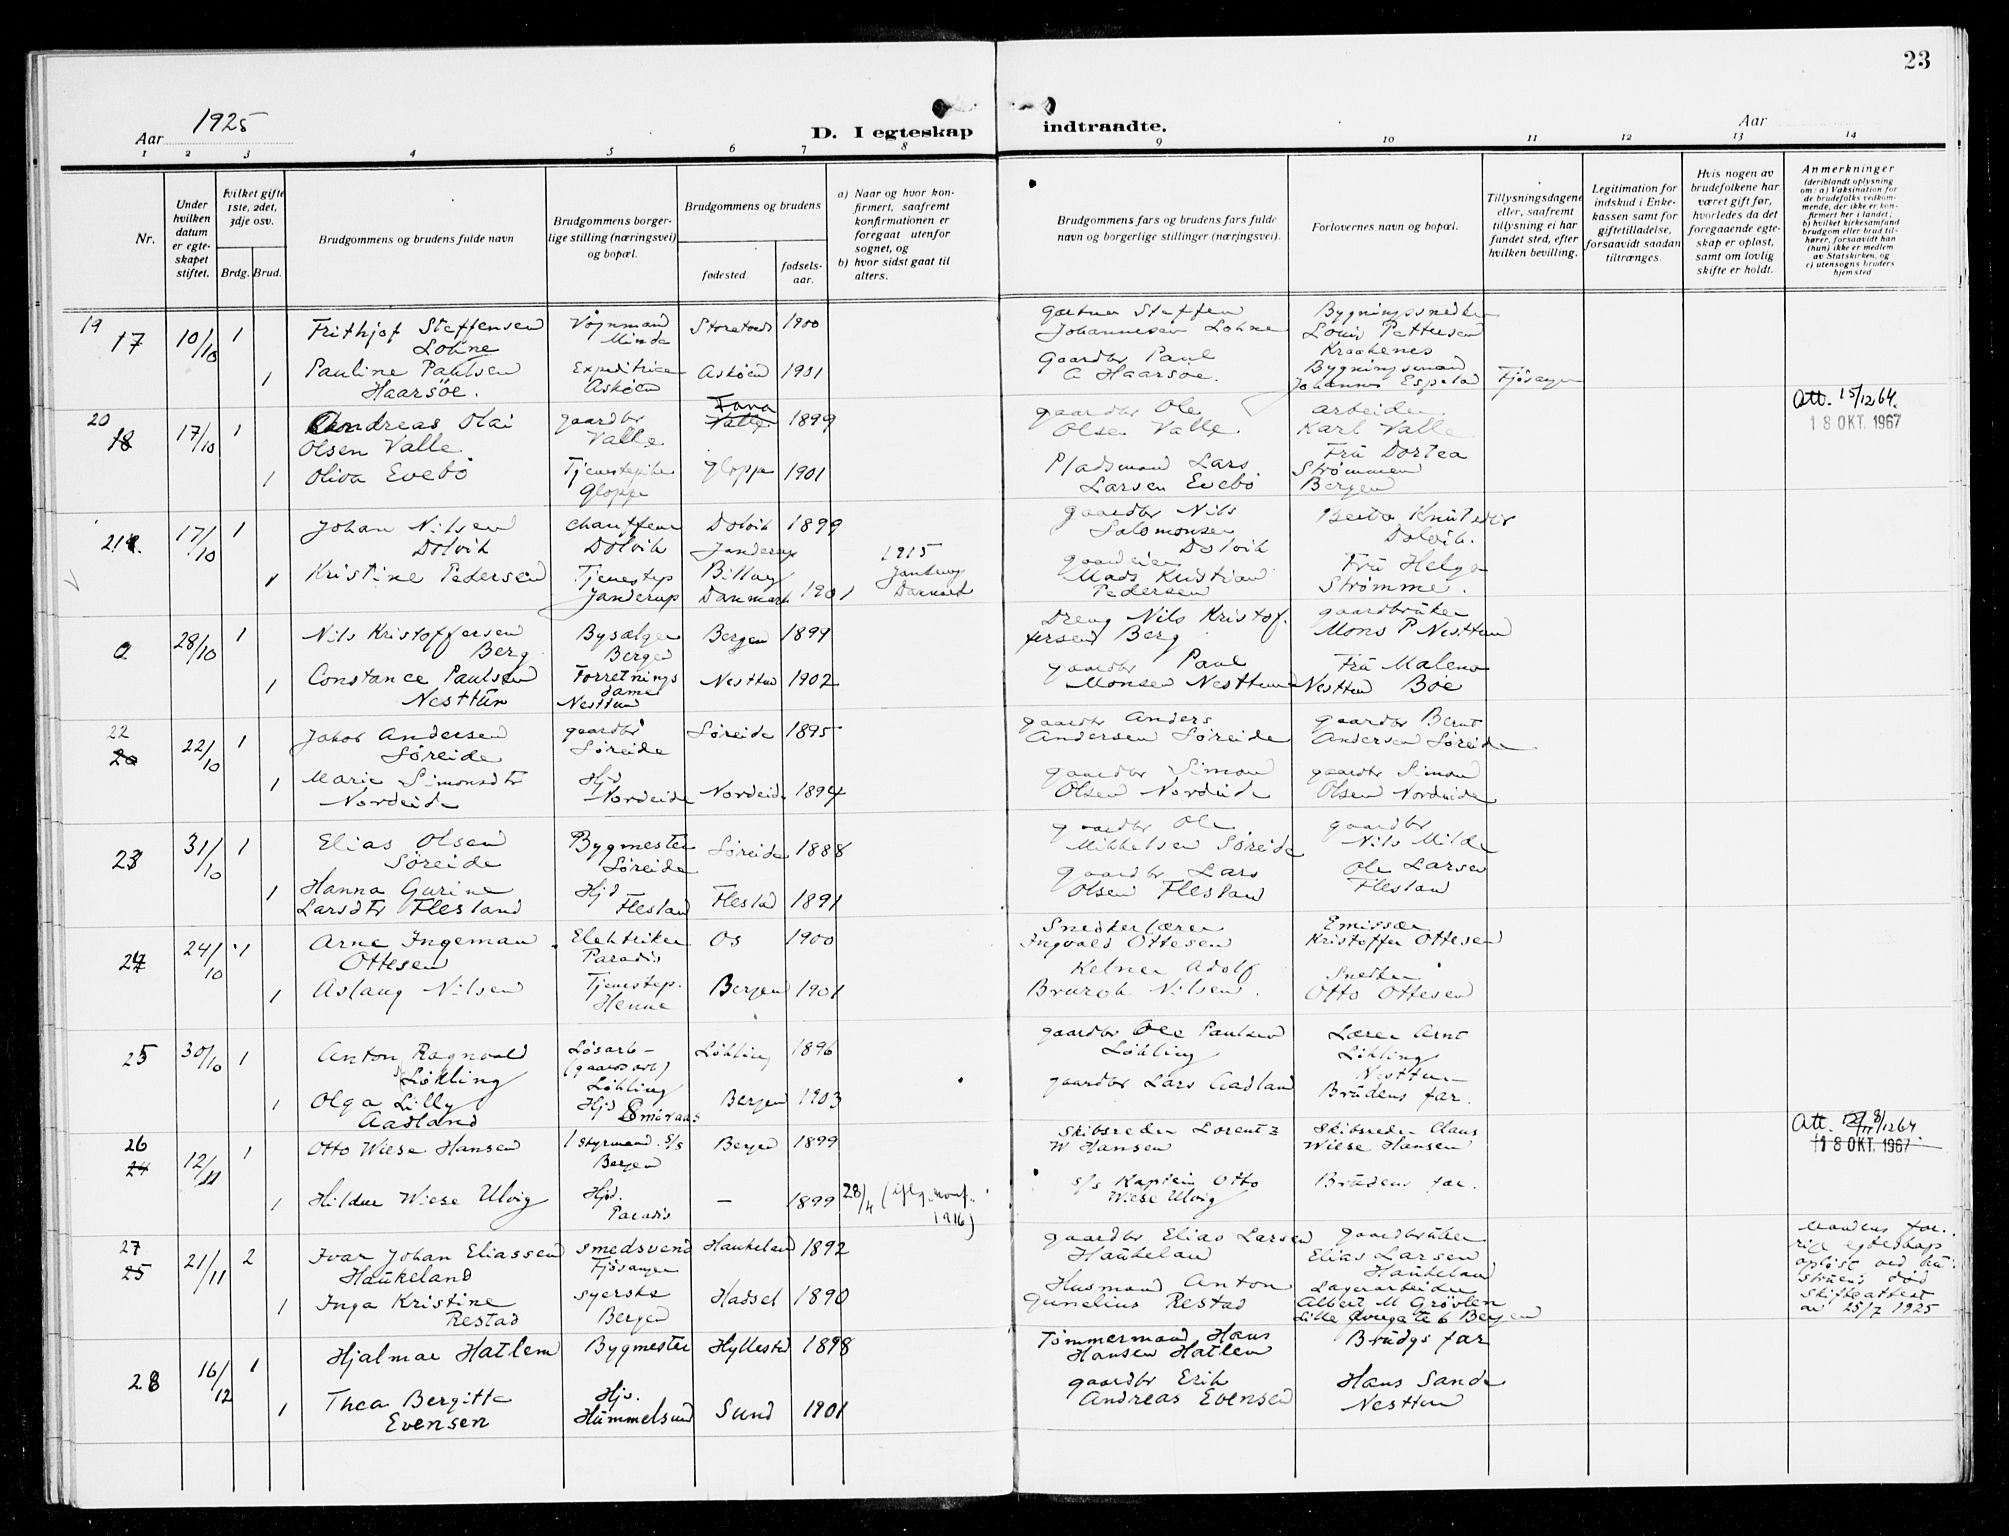 23
Aar 1925
D. I egteskap indtraadte.
Aar
1 2 3 4 5 6 7 8 9 10 11 12 13 14
Nr.
Under hvilken datum er egteskapet stiftet.
Hvilket gifte 1ste, 2det, 3dje osv.
Brdg. Brud.
Brudgommens og brudens fulde navn
Brudgommens borgerlige stilling (næringsvei) og bopæl.
Brudgommens og brudens
fødested. fødselsaar.
a) Naar og hvor konfirmert, saafremt konfirmationen er foregaat utenfor sognet, og
b) hvor sidst gaat til alters.
Brudgommens fars og brudens fars fulde navn og borgerlige stillinger (næringsvei).
Forlovernes navn og bopæl.
Tillysningsdagene eller, saafremt tillysning ei har fundet sted, efter hvilken bevilling.
Legitimation for indskud i Enkekassen samt for giftetilladelse, forsaavidt saadan tiltrænges.
Hvis nogen av brudefolkene har været gift før, hvorledes da det foregaaende egteskap er opløst, samt om lovlig skifte er holdt.
Anmerkninger
(deriblandt oplysning om: a) Vaksination for de brudefolks vedkommende, der ikke er konfirmert her i landet; b) hvilket kirkesamfund brudgom eller brud tilhører, forsaavidt han (hun) ikke er medlem av Statskirken, og c) utensogns bruders hjemsted
19
17 10/10 1 Frithjof Steffensen Vognmand 1900 Steffen Bygningssnedker
Lohne Minde Johannesen Lohne Louis Pettersen
Kraakenes
1 Pauline Paulsen Expeditrice Askøen 1901 Gaardbr Paul Bygningsmand
Haarsøe. Askøen A Haarsøe. Johannes Espeland Fjøsanger
20 Att. 15/12 64.
18 17/10 1 Andreas Olai gaardbr Fana 1899 gaardbr Ole arbeider 18 OKT. 1967
Olsen Valle Valle Valle Olsen Valle Karl Valle
1 Oliva Evebø Tjenestepike Gloppe 1901 Pladsmand Lars Frü Dortea
Gloppe Larsen Evebø Strømmen
Bergen
21. 17/10 1 Johan Nilsen chauffeur Dolvik 1899 gaardbr Nils
Dolvik Dolvik Janderup Salomonsen Dolvik.
1 Kristine Pedersen Tjenestep Billay 1901 1915 Dolvik Frü Helga
Janderup Danmark Janderup Mads Kristian Strømme.
Danmark Pedersen
0 28/10 1 Nils Kristoffersen Bysælger Bergen 1899 Dreng Nils Kristof. gaardbrüker
Berg Bergen fersen Berg Mons P Nesttun
1 Constance Paulsen Forretnings Nesttun 1902 gaardbr Paul Frü Malena
Nesttün dame Monsen Nesttun Nesttun Bøe
Nesttun
22
20 22/10 1 Jakob Andersen gaardbr Søreide 1895 gaardbr Anders gaardbr Bernt
Søreide Søreide Andersen Søreide Andersen Søreide
1 Marie Simonsdtr Hjd Nordeide 1894 gaardbr Simon gaardbr Simon
Nordeide Nordeide Olsen Nordeide Olsen Nordeide
23 31/10 1 Elias Olsen Bygmester Søreide 1888 gaardbr Ole gaardbr
Søreide Søreide Mikkelsen Søreide Nils Milde
1 Hanna Gurine Hjd Flesland 1891 gaardbr Lars Ole Larsen
Larsdtr Flesland Flesland Olsen Flesland Flesland
24 24/10 1 Arne Ingeman Elektriker Os 1900 Snedkerlærer Emissær
Ottesen Paradis Ingvald Ottesen Kristoffer Ottesen
1 Aslaug Nilsen Tjenestep. Bergen 1901 Kelner Adolf Snedker
Nilsen. Otto Ottesen
25 30/10 1 Anton Ragnvald Løsarb- Løkling 1896 gaardbr Ole Paulsen Lærer Arnt
Løkling (gaardsarb) Løkling Løkling
Løkling Nesttun
1 Olga Lilly Hjd Smøraas Bergen 1903 gaardbr Lars Aadland Brüdens far.
Aadland
26 Att.
24 12/11 1 Otto Wiese Hansen 1 styrmand. S/S Bergen 1899 Skibsreder Lorentz Skibsreder Claus 18 OKT. 1967
Bergen W Hansen Wiese Hansen
1 Hildur Wiese Ulvig Hjd. — 1899 28/4 S/s Kaptein Otto Brüdens far.
Paradis 1916) Wiese Ulvig
27
25 21/11 2 Ivar Johan Eliassen smedsvend Haukeland 1892 gaardbr Elias Larsen gaardbrüker Mandens for.
Haükeland Fjøsanger Haükeland Elias Larsen rige egteskap
Haükeland opløst ved hü.
1 Inga Kristine syerske Hadsel 1890 Husmand Anton Lagerarbeider strüens død
Restad Bergen Gunelius Restad Albert M Grøvlen Skifteattest
Lille Bergen av 25/7 1925
28 16/12 1 Hjalmar Hatlem Bygmester Hyllestad 1898 Tømmermand Hans Brüdgs far
Hansen Hatlem
1 Thea Bergitte Hjs. Sund 1901 gaardbr Erik Hans Sande
Evensen Hümmelsund Andreas Evensen Nesttun